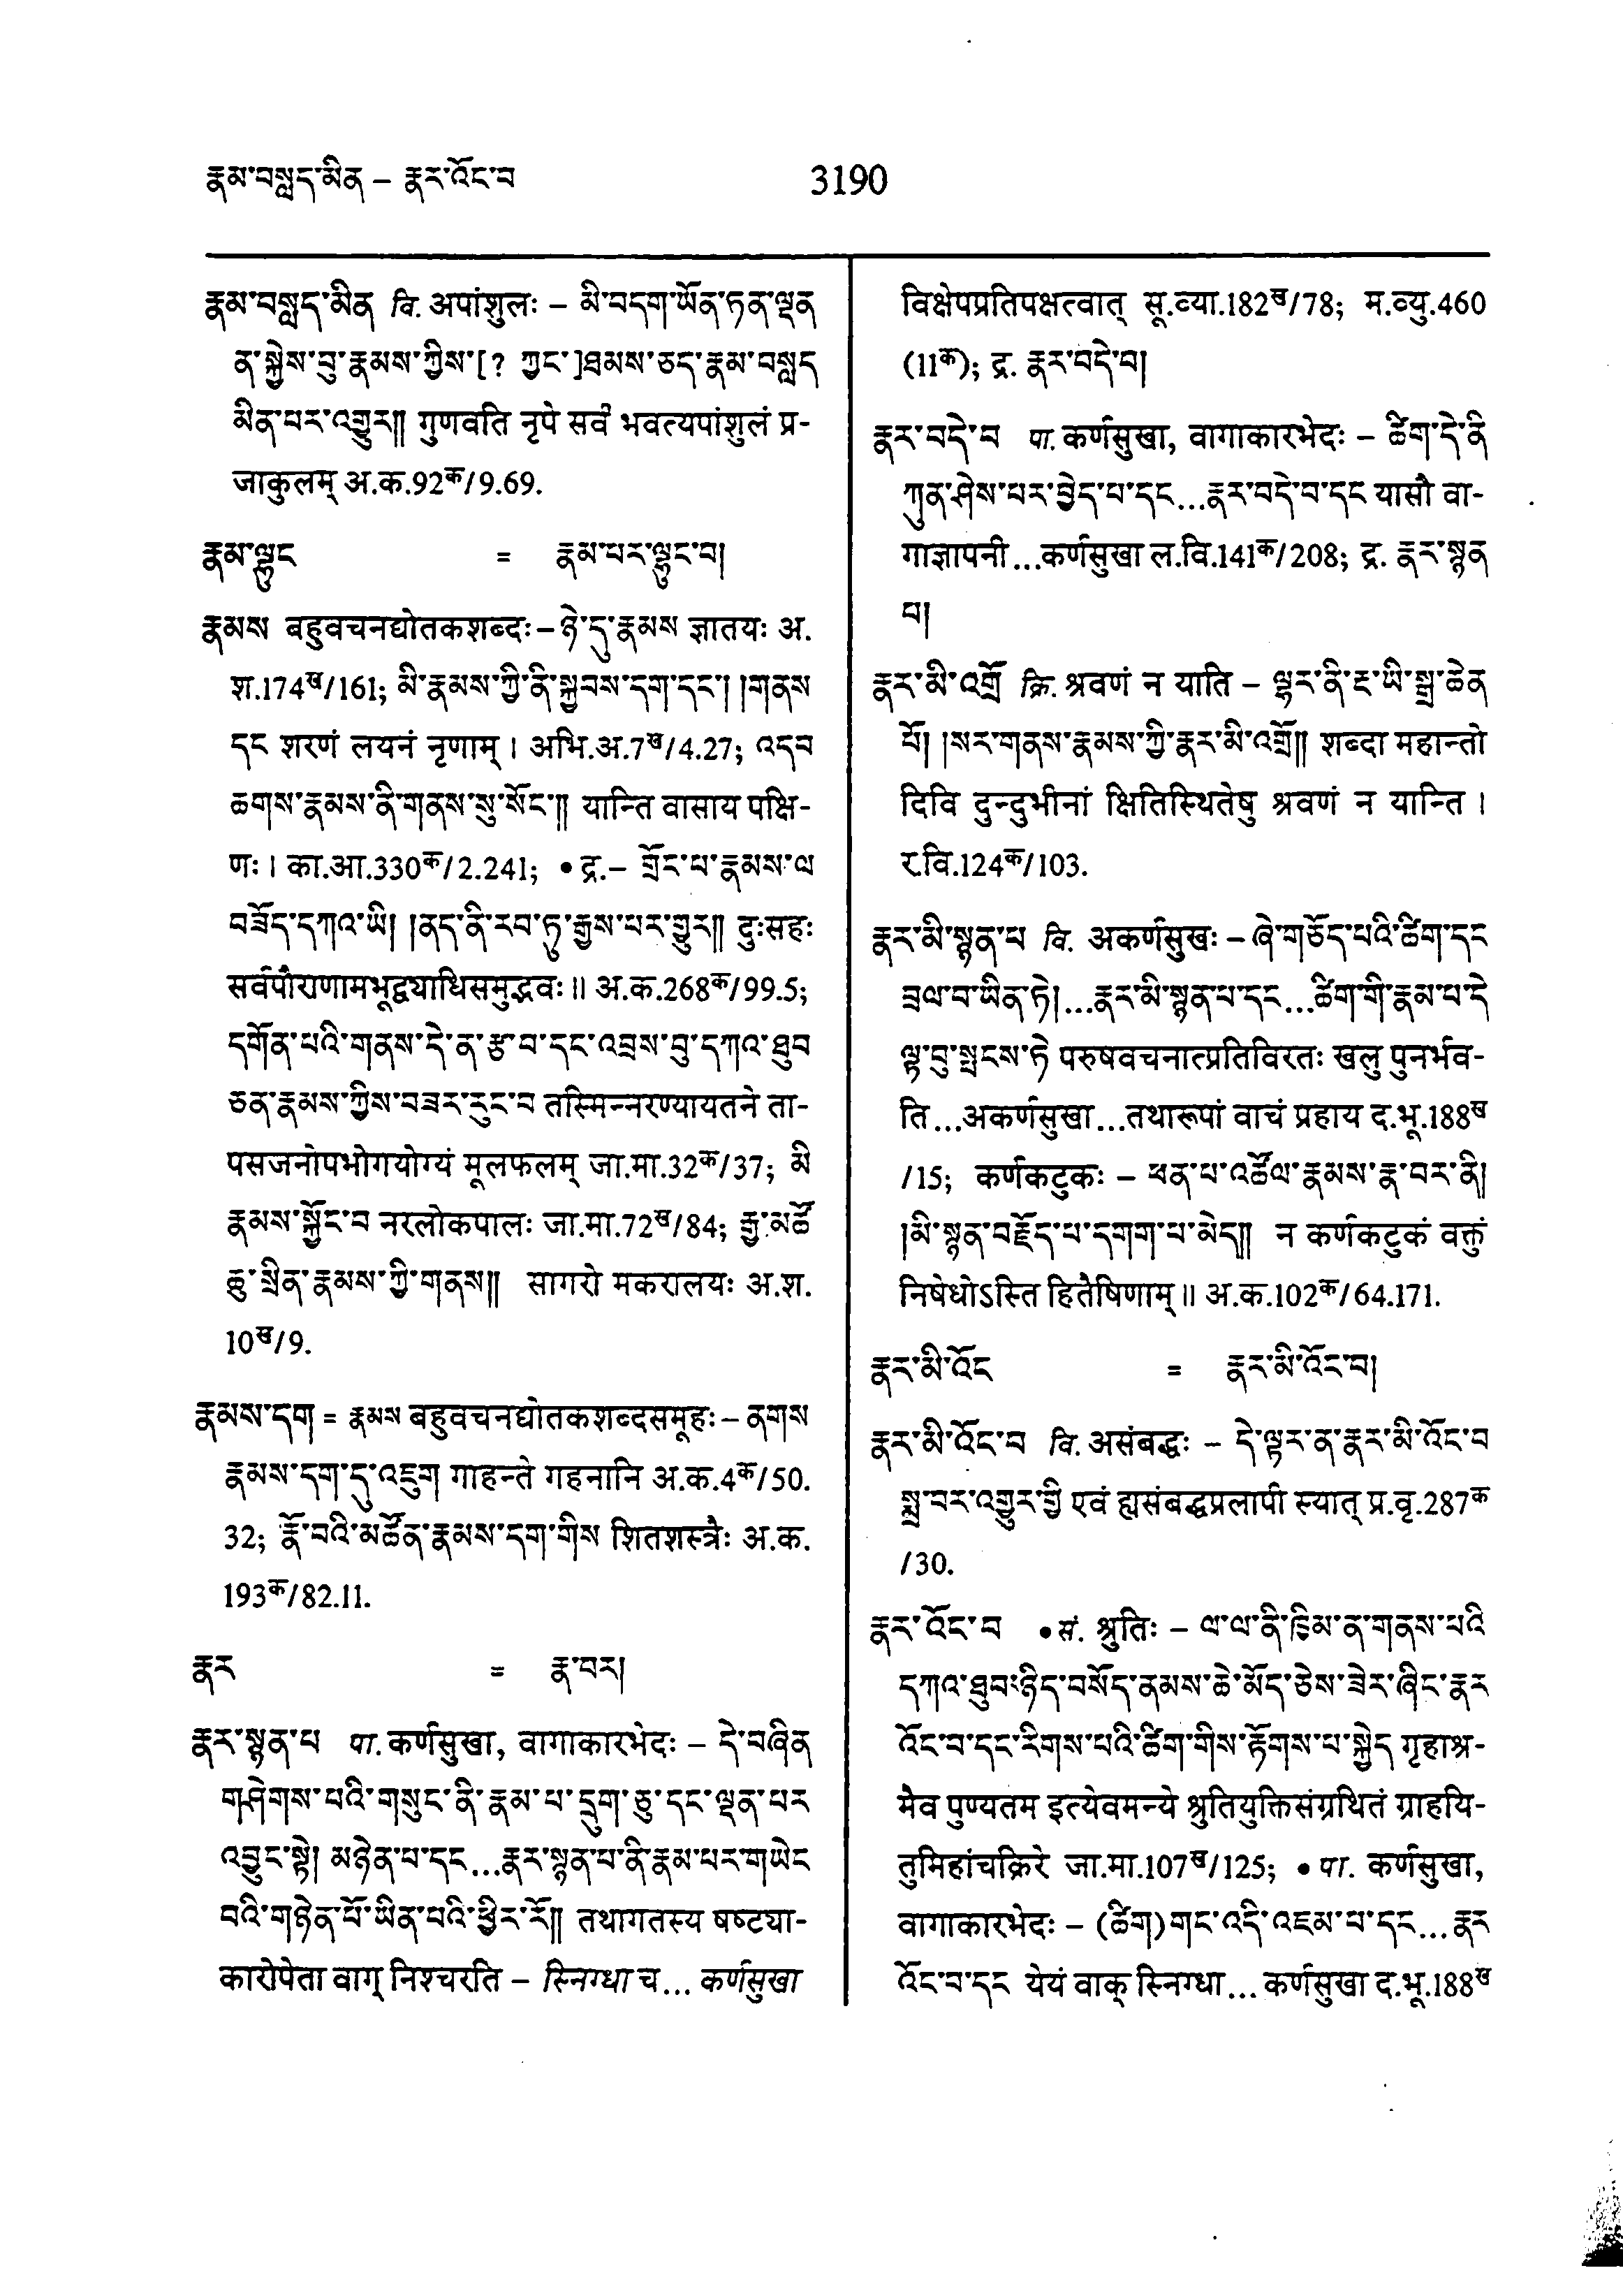 རྣམ་བསླད་མིན – རྣར་འོང་བ
3190
རྣམ་བསླད་མིན वि. अपांशुलः – མི་བདག་ཡོན་ཏན་ལྡན
ན་སྐྱེས་བུ་རྣམས་ཀྱིས་[? ཀྱང་]ཐམས་ཅད་རྣམ་བསླད
མིན་པར་འགྱུར༎ गुणवति नृपे सर्वं भवत्यपांशुलं प्र-
जाकुलम् अ.क.92क/9.69.
རྣམ་ལྷུང = རྣམ་པར་ལྷུང་བ།
རྣམས बहुवचनद्योतकशब्दः – ཉེ་དུ་རྣམས ज्ञातयः अ.
श.174ख/161; མི་རྣམས་ཀྱི་ནི་སྐྱབས་དག་དང་། །གནས
དང शरणं लयनं नृणाम् । अभि.अ.7ख/4.27; འདབ
ཆགས་རྣམས་ནི་གནས་སུ་སོང་༎ यान्ति वासाय पक्षि-
णः । का.आ.330क/2.241; • द्र.– གྲོང་པ་རྣམས་ལ
བཟོད་དཀའ་ཡི། །ནད་ནི་རབ་ཏུ་རྒྱས་པར་གྱུར༎ दुःसहः
सर्वपौराणामभूद्व्याधिसमुद्भवः ॥ अ.क.268क/99.5;
དགོན་པའི་གནས་དེ་ན་རྩ་བ་དང་འབྲས་བུ་དཀའ་ཐུབ
ཅན་རྣམས་ཀྱིས་བཟར་རུང་བ तस्मिन्नरण्यायतने ता-
पसजनोपभोगयोग्यं मूलफलम् जा.मा.32क/37; མི
རྣམས་སྐྱོང་བ नरलोकपालः जा.मा.72ख/84; རྒྱ་མཚོ
ཆུ་སྲིན་རྣམས་ཀྱི་གནས༎ सागरो मकरालयः अ.श.
10ख/9.
རྣམས་དག = རྣམས बहुवचनद्योतकशब्दसमूहः – ནགས
རྣམས་དག་དུ་འཇུག गाहन्ते गहनानि अ.क.4क/50.
32; རྣོ་བའི་མཚོན་རྣམས་དག་གིས शितशस्त्रैः अ.क.
193क/82.11.
རྣར = རྣ་བར།
རྣར་སྙན་པ पा. कर्णसुखा, वागाकारभेदः – དེ་བཞིན
གཤེགས་པའི་གསུང་ནི་རྣམ་པ་དྲུག་ཅུ་དང་ལྡན་པར
འབྱུང་སྟེ། མཉེན་པ་དང...རྣར་སྙན་པ་ནི་རྣམ་པར་གཡེང
བའི་གཉེན་པོ་ཡིན་པའི་ཕྱིར་རོ༎ तथागतस्य षष्ट्या-
कारोपेता वाग् निश्चरति – स्निग्धा च... कर्णसुखा
विक्षेपप्रतिपक्षत्वात् सू.व्या.182ख/78; म.व्यु.460
(11क); द्र. རྣར་བདེ་བ།
རྣར་བདེ་བ पा. कर्णसुखा, वागाकारभेदः – ཚིག་དེ་ནི
ཀུན་ཤེས་པར་བྱེད་པ་དང...རྣར་བདེ་བ་དང यासौ वा-
गाज्ञापनी...कर्णसुखा ल.वि.141क/208; द्र. རྣར་སྙན
པ།
རྣར་མི་འགྲོ क्रि. श्रवणं न याति – ལྷར་ནི་རྔ་ཡི་སྒྲ་ཆེན
པོ། །སར་གནས་རྣམས་ཀྱི་རྣར་མི་འགྲོ༎ शब्दा महान्तो
दिवि दुन्दुभीनां क्षितिस्थितेषु श्रवणं न यान्ति ।
र.वि.124क/103.
རྣར་མི་སྙན་པ वि. अकर्णसुखः – ཞེ་གཅོད་པའི་ཚིག་དང
བྲལ་བ་ཡིན་ཏེ།...རྣར་མི་སྙན་པ་དང...ཚིག་གི་རྣམ་པ་དེ
ལྟ་བུ་སྤངས་ཏེ परुषवचनात्प्रतिविरतः खलु पुनर्भव-
ति...अकर्णसुखा...तथारूपां वाचं प्रहाय द.भू.188ख
/15; कर्णकटुकः – ཕན་པ་འཚོལ་རྣམས་རྣ་བར་ནི།
།མི་སྙན་བརྗོད་པ་དགག་པ་མེད༎ न कर्णकटुकं वक्तुं
निषेधोऽस्ति हितैषिणाम् ॥ अ.क.102क/64.171.
རྣར་མི་འོང = རྣར་མི་འོང་བ།
རྣར་མི་འོང་བ वि. असंबद्धः – དེ་ལྟར་ན་རྣར་མི་འོང་བ
སྨྲ་བར་འགྱུར་གྱི एवं ह्यसंबद्धप्रलापी स्यात् प्र.वृ.287क
/30.
རྣར་འོང་བ • सं. श्रुतिः – ལ་ལ་ནི་ཁྱིམ་ན་གནས་པའི
དཀའ་ཐུབ་ཉིད་བསོད་ནམས་ཆེ་མོད་ཅེས་ཟེར་ཞིང་རྣར
འོང་བ་དང་རིགས་པའི་ཚིག་གིས་རྟོགས་པ་སྐྱེད गृहाश्र-
मैव पुण्यतम इत्येवमन्ये श्रुतियुक्तिसंग्रथितं ग्राहयि-
तुमिहांचक्रिरे जा.मा.107ख/125; • पा. कर्णसुखा,
वागाकारभेदः – (ཚིག)གང་འདི་འཇམ་པ་དང... རྣར
འོང་བ་དང येयं वाक् स्निग्धा... कर्णसुखा द.भू.188ख